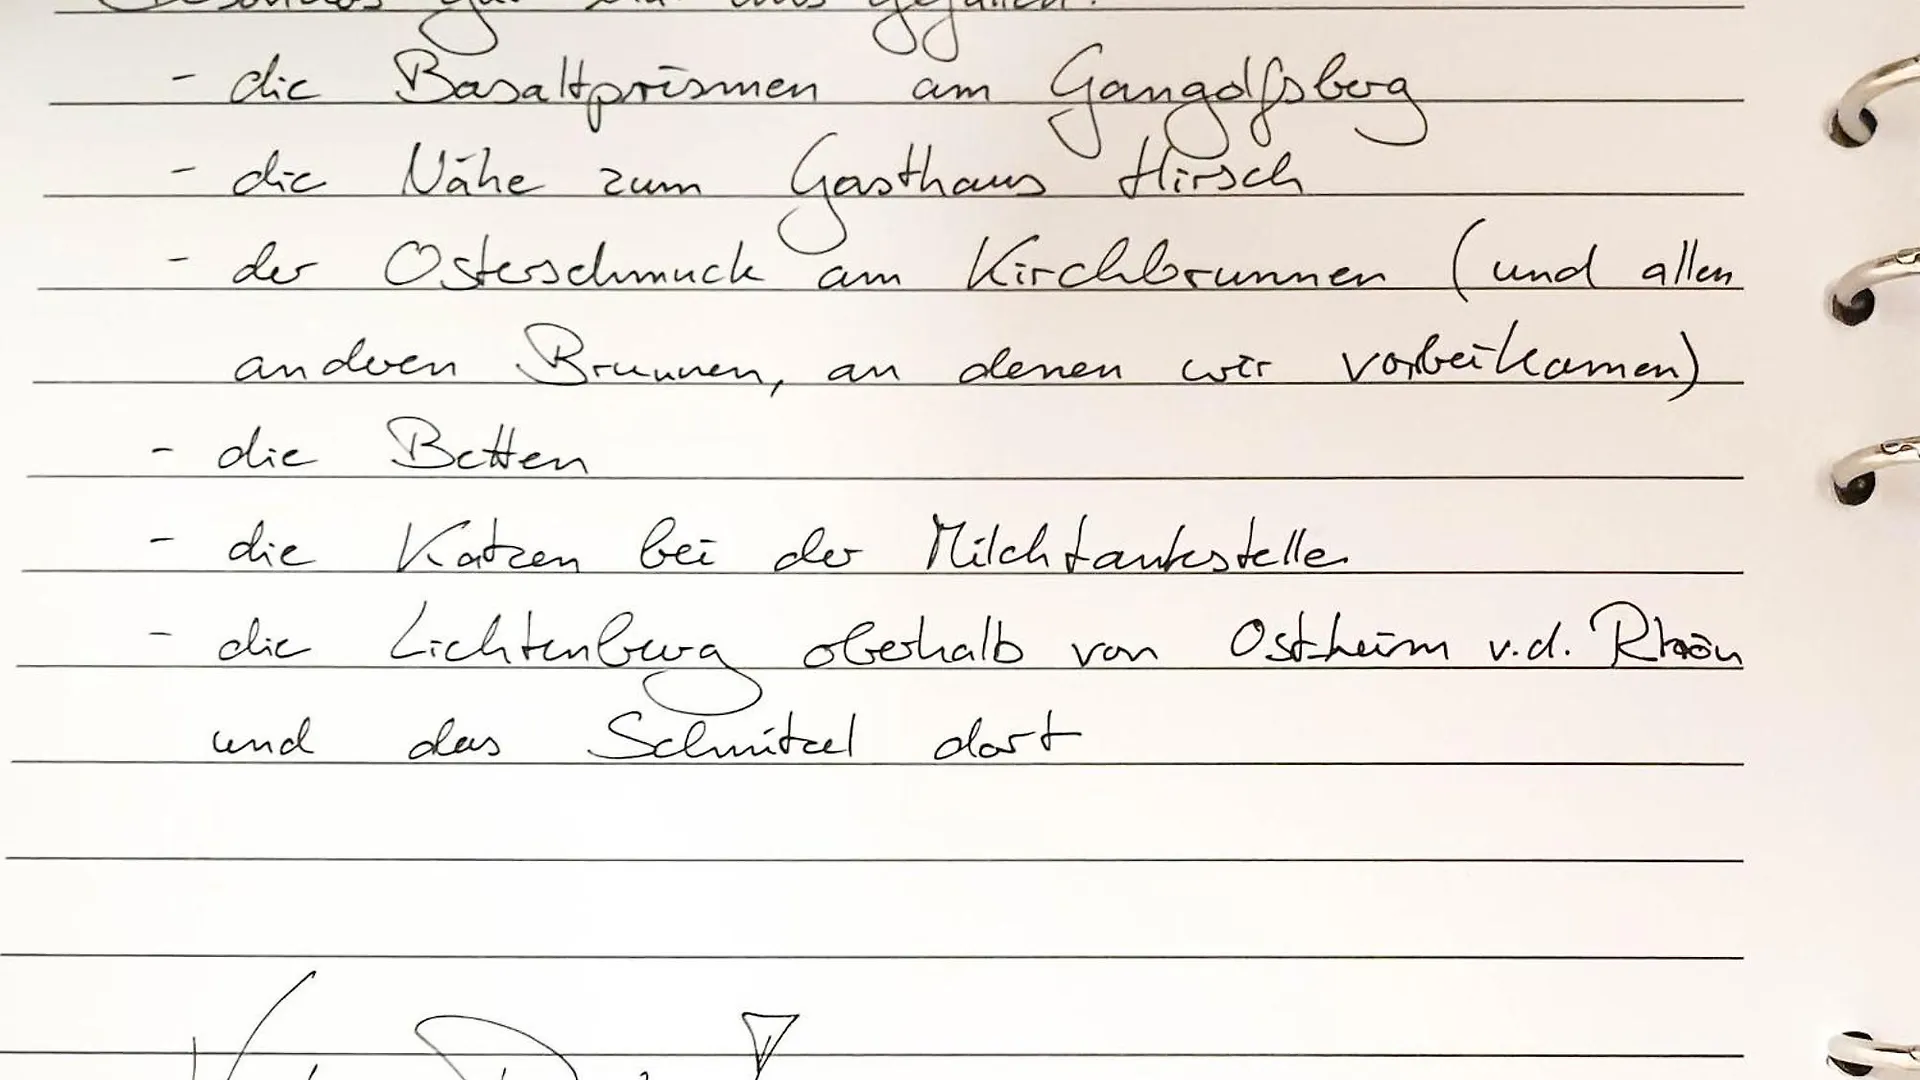 Besonders gut hat uns gefallen:
- die Basaltprismen am Gangolfsberg
- die Nähe zum Gasthaus Hirsch
- der Osterschmuck am Kirchbrunnen (und allen
anderen Brunnen, an denen wir vorbeikamen)
- die Betten
- die Katzen bei der Milchtankstelle
- die Lichtenburg oberhalb von Ostheim v.d. Rhön
und das Schnitzel dort